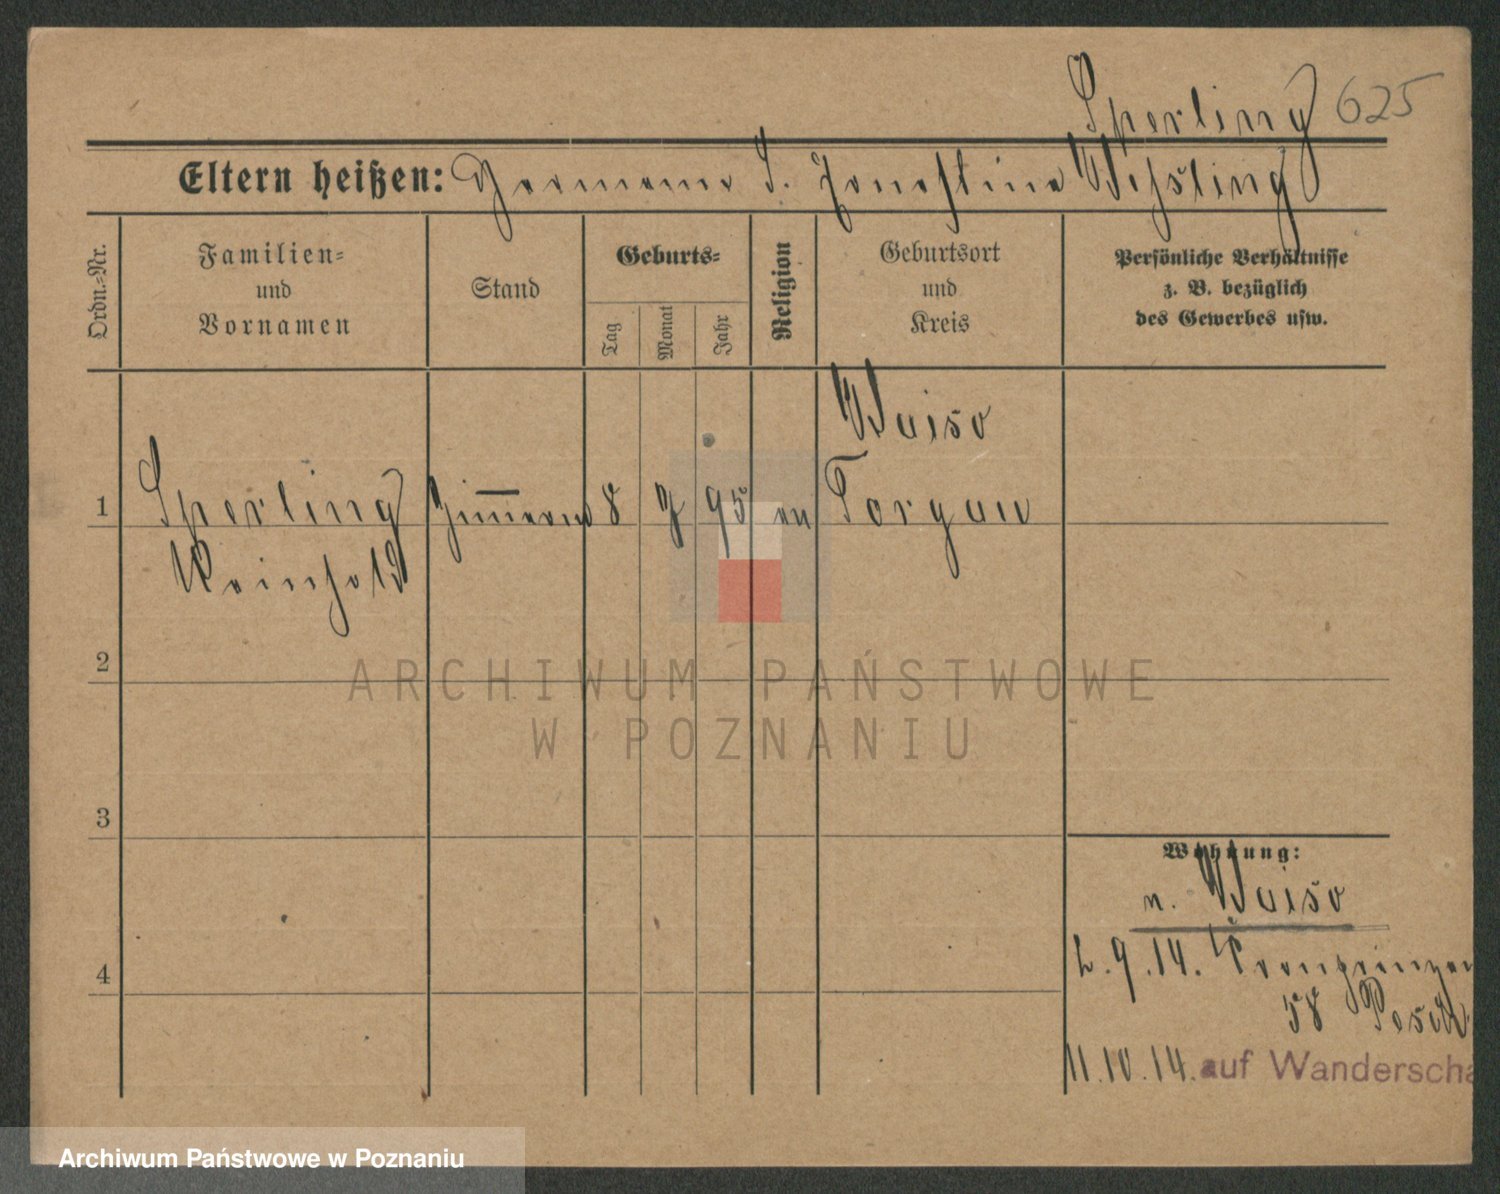 Sperling 625
Eltern heißen: Hermann S. Ernestine Wesling
Ordn.-Nr.
Familien-
und
Vornamen
Stand
Geburts-
Tag
Monat
Jahr
Religion
Geburtsort
und
Kreis
Persönliche Verhältnisse
z. B. bezüglich
des Gewerbes usw.
Waise
1 Sperling 8 7 95 ev Torgau
Reinhold
2
3
4
Wohnung:
n. Waise
2.9.14. Kronprinzen
58
11.10.14. auf Wanderscha
ARCHIWUM PAŃSTWOWE
W POZNANIU
Archiwum Państwowe w Poznaniu